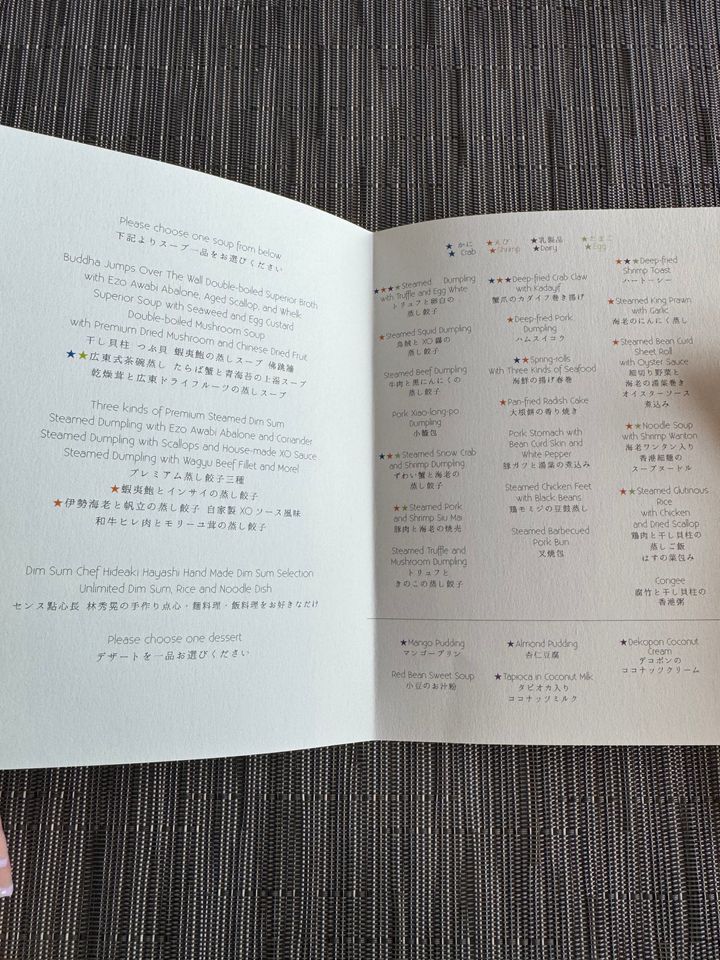 Please choose one soup from below
下記よりスープ一品をお選びください
Buddha Jumps Over The Wall Double-boiled Superior Broth
with Ezo Awabi Abalone, Aged Scallop, and Whelk
Superior Soup with Seaweed and Egg Custard
Double-boiled Mushroom Soup
with Premium Dried Mushroom and Chinese Dried Fruit
干し貝柱 つぶ貝 蝦夷鮑の蒸しスープ 佛跳牆
★★広東式茶碗蒸し たらば蟹と青海苔の上湯スープ
乾燥茸と広東ドライフルーツの蒸しスープ
Three kinds of Premium Steamed Dim Sum
Steamed Dumpling with Ezo Awabi Abalone and Coriander
Steamed Dumpling with Scallops and House-made XO Sauce
Steamed Dumpling with Wagyu Beef Fillet and Morel
プレミアム蒸し餃子三種
★蝦夷鮑とインサイの蒸し餃子
★伊勢海老と帆立の蒸し餃子 自家製 XOソース風味
和牛ヒレ肉とモリーユ茸の蒸し餃子
Dim Sum Chef Hideaki Hayashi Hand Made Dim Sum Selection
Unlimited Dim Sum, Rice and Noodle Dish
センス點心長 林秀晃の手作り点心・麺料理・飯料理をお好きなだけ
Please choose one dessert
デザートを一品お選びください
★ かに ★えび ★乳製品 ★たまご
★ Crab ★Shrimp ★Dairy ★Egg
★★★Steamed Dumpling
with Truffle and Egg White
トリュフと卵白の
蒸し餃子
★Steamed Squid Dumpling
烏賊と XO 醤の
蒸し餃子
Steamed Beef Dumpling
牛肉と黒にんにくの
蒸し餃子
Pork Xiao-long-po
Dumpling
小籠包
★★★Steamed Snow Crab
and Shrimp Dumpling
ずわい蟹と海老の
蒸し餃子
★★Steamed Pork
and Shrimp Siu Mai
豚肉と海老の焼売
Steamed Truffle and
Mushroom Dumpling
トリュフと
きのこの蒸し餃子
★★★Deep-fried Crab Claw
with Kadayif
蟹爪のカダイフ巻き揚げ
★Deep-fried Pork
Dumpling
ハムスイコウ
★★Spring-rolls
with Three Kinds of Seafood
海鮮の揚げ春巻
★Pan-fried Radish Cake
大根餅の香り焼き
Pork Stomach with
Bean Curd Skin and
White Pepper
豚ガツと湯葉の煮込み
Steamed Chicken Feet
with Black Beans
鶏モミジの豆鼓蒸し
Steamed Barbecued
Pork Bun
叉焼包
★★★Deep-fried
Shrimp Toast
ハートーシー
★Steamed King Prawn
with Garlic
海老のにんにく蒸し
★Steamed Bean Curd
Sheet Roll
with Oyster Sauce
細切り野菜と
海老の湯葉巻き
オイスターソース
煮込み
★★Noodle Soup
with Shrimp Wanton
海老ワンタン入り
香港細麺の
スープヌードル
★★Steamed Glutinous
Rice
with Chicken
and Dried Scallop
鶏肉と干し貝柱の
蒸しご飯
はすの葉包み
Congee
腐竹と干し貝柱の
香港粥
★Mango Pudding
マンゴープリン
★Almond Pudding
杏仁豆腐
★Dekopon Coconut
Cream
デコポンの
ココナッツクリーム
Red Bean Sweet Soup
小豆のお汁粉
★Tapioca in Coconut Milk
タピオカ入り
ココナッツミルク